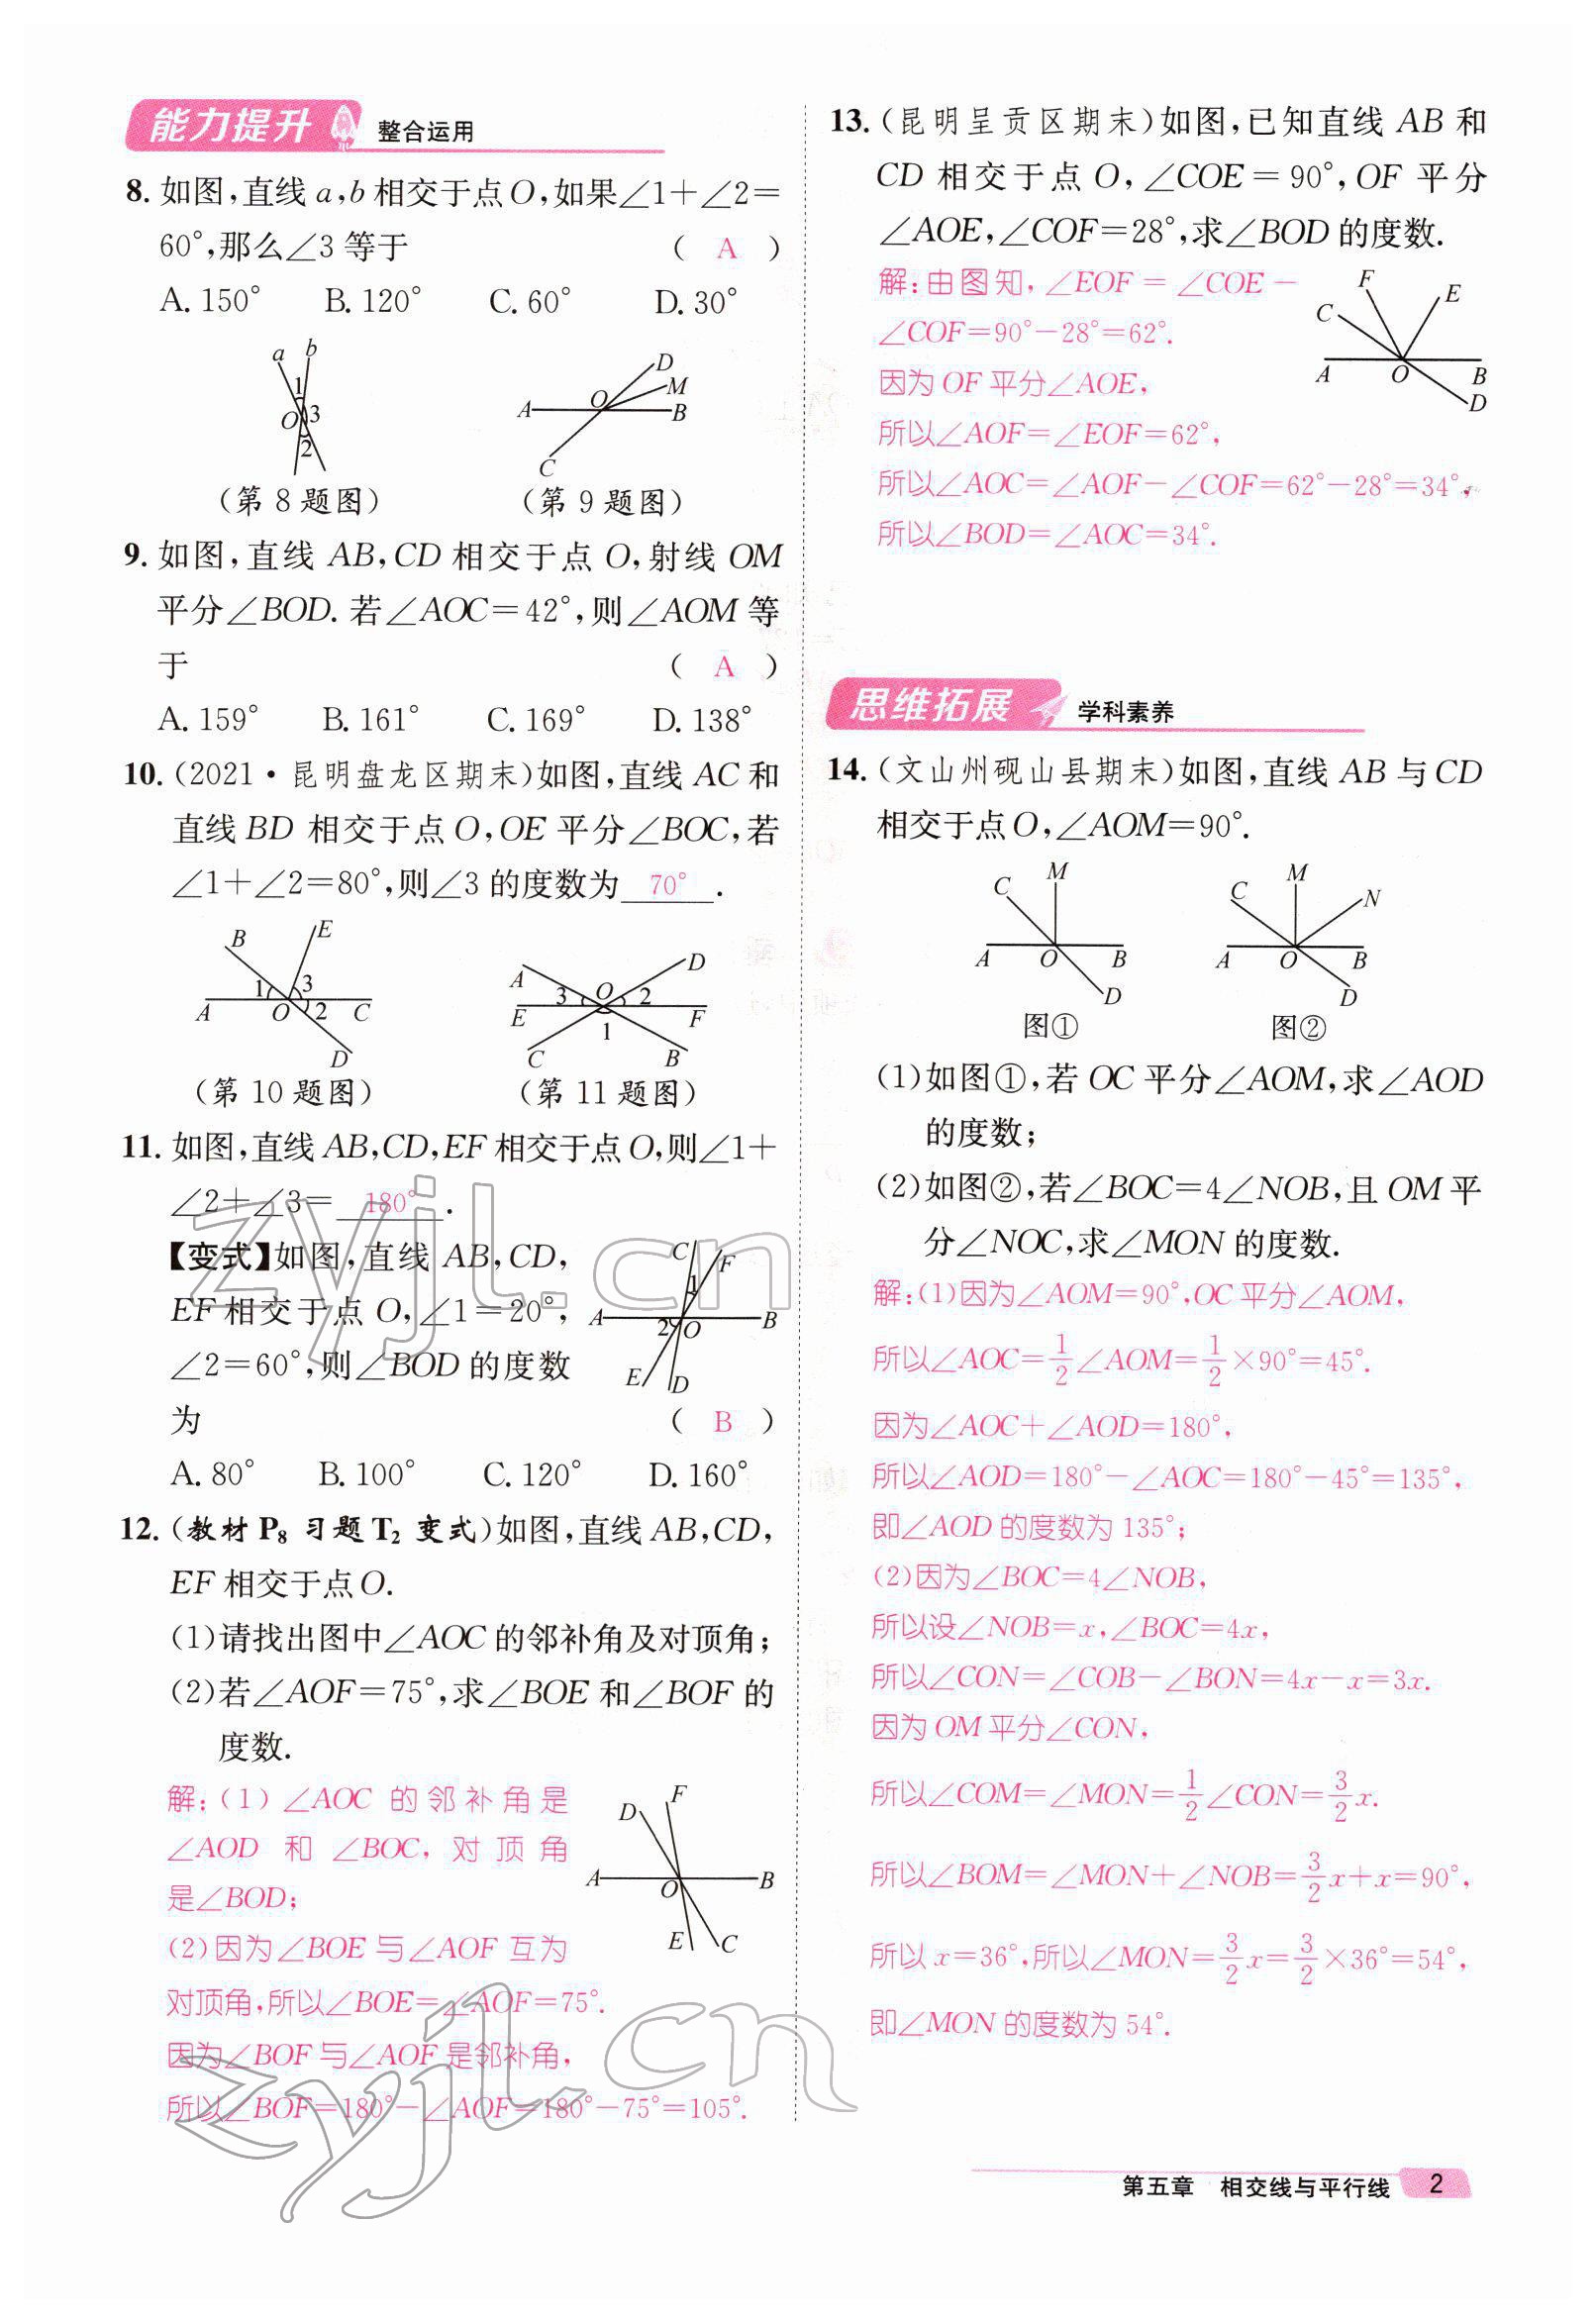 能力提升 整合运用
8. 如图,直线 a,b 相交于点 O,如果∠1+∠2=
60°,那么∠3 等于 ( A )
A. 150° B. 120° C. 60° D. 30°
a b 1 O 3 2
D M O A B C
(第 8 题图) (第 9 题图)
9. 如图,直线 AB,CD 相交于点 O,射线 OM
平分∠BOD. 若∠AOC=42°,则∠AOM 等
于 ( A )
A. 159° B. 161° C. 169° D. 138°
10. (2021·昆明盘龙区期末)如图,直线 AC 和
直线 BD 相交于点 O,OE 平分∠BOC,若
∠1+∠2=80°,则∠3 的度数为 70° .
B E 1 3 A O 2 C D
A D 3 O 2 E 1 F C B
(第 10 题图) (第 11 题图)
11. 如图,直线 AB,CD,EF 相交于点 O,则∠1+
∠2+∠3= 180° .
【变式】如图,直线 AB,CD,
EF 相交于点 O,∠1=20°,
∠2=60°,则∠BOD 的度数
为 ( B )
C F 1 A 2 O B E D
A. 80° B. 100° C. 120° D. 160°
12. (教材 P₈ 习题 T₂ 变式)如图,直线 AB,CD,
EF 相交于点 O.
(1)请找出图中∠AOC 的邻补角及对顶角;
(2)若∠AOF=75°,求∠BOE 和∠BOF 的
度数.
解:(1)∠AOC 的邻补角是
∠AOD 和 ∠BOC,对顶角
是∠BOD;
(2)因为∠BOE 与∠AOF 互为
对顶角,所以∠BOE=∠AOF=75°.
因为∠BOF 与∠AOF 是邻补角,
所以∠BOF=180°-∠AOF=180°-75°=105°.
F D A O B E C
13. (昆明呈贡区期末)如图,已知直线 AB 和
CD 相交于点 O,∠COE=90°,OF 平分
∠AOE,∠COF=28°,求∠BOD 的度数.
解:由图知,∠EOF=∠COE-
∠COF=90°-28°=62°.
因为 OF 平分∠AOE,
所以∠AOF=∠EOF=62°,
所以∠AOC=∠AOF-∠COF=62°-28°=34°,
所以∠BOD=∠AOC=34°.
F E C A O B D
思维拓展 学科素养
14. (文山州砚山县期末)如图,直线 AB 与 CD
相交于点 O,∠AOM=90°.
C M A O B D
C M N A O B D
图① 图②
(1)如图①,若 OC 平分∠AOM,求∠AOD
的度数;
(2)如图②,若∠BOC=4∠NOB,且 OM 平
分∠NOC,求∠MON 的度数.
解:(1)因为∠AOM=90°,OC 平分∠AOM,
所以∠AOC=1/2∠AOM=1/2×90°=45°.
因为∠AOC+∠AOD=180°,
所以∠AOD=180°-∠AOC=180°-45°=135°,
即∠AOD 的度数为 135°;
(2)因为∠BOC=4∠NOB,
所以设∠NOB=x,∠BOC=4x,
所以∠CON=∠COB-∠BON=4x-x=3x.
因为 OM 平分∠CON,
所以∠COM=∠MON=1/2∠CON=3/2x.
所以∠BOM=∠MON+∠NOB=3/2x+x=90°,
所以 x=36°,所以∠MON=3/2x=3/2×36°=54°,
即∠MON 的度数为 54°.
zyjl.cn
zyjl.cn
第五章 相交线与平行线 2